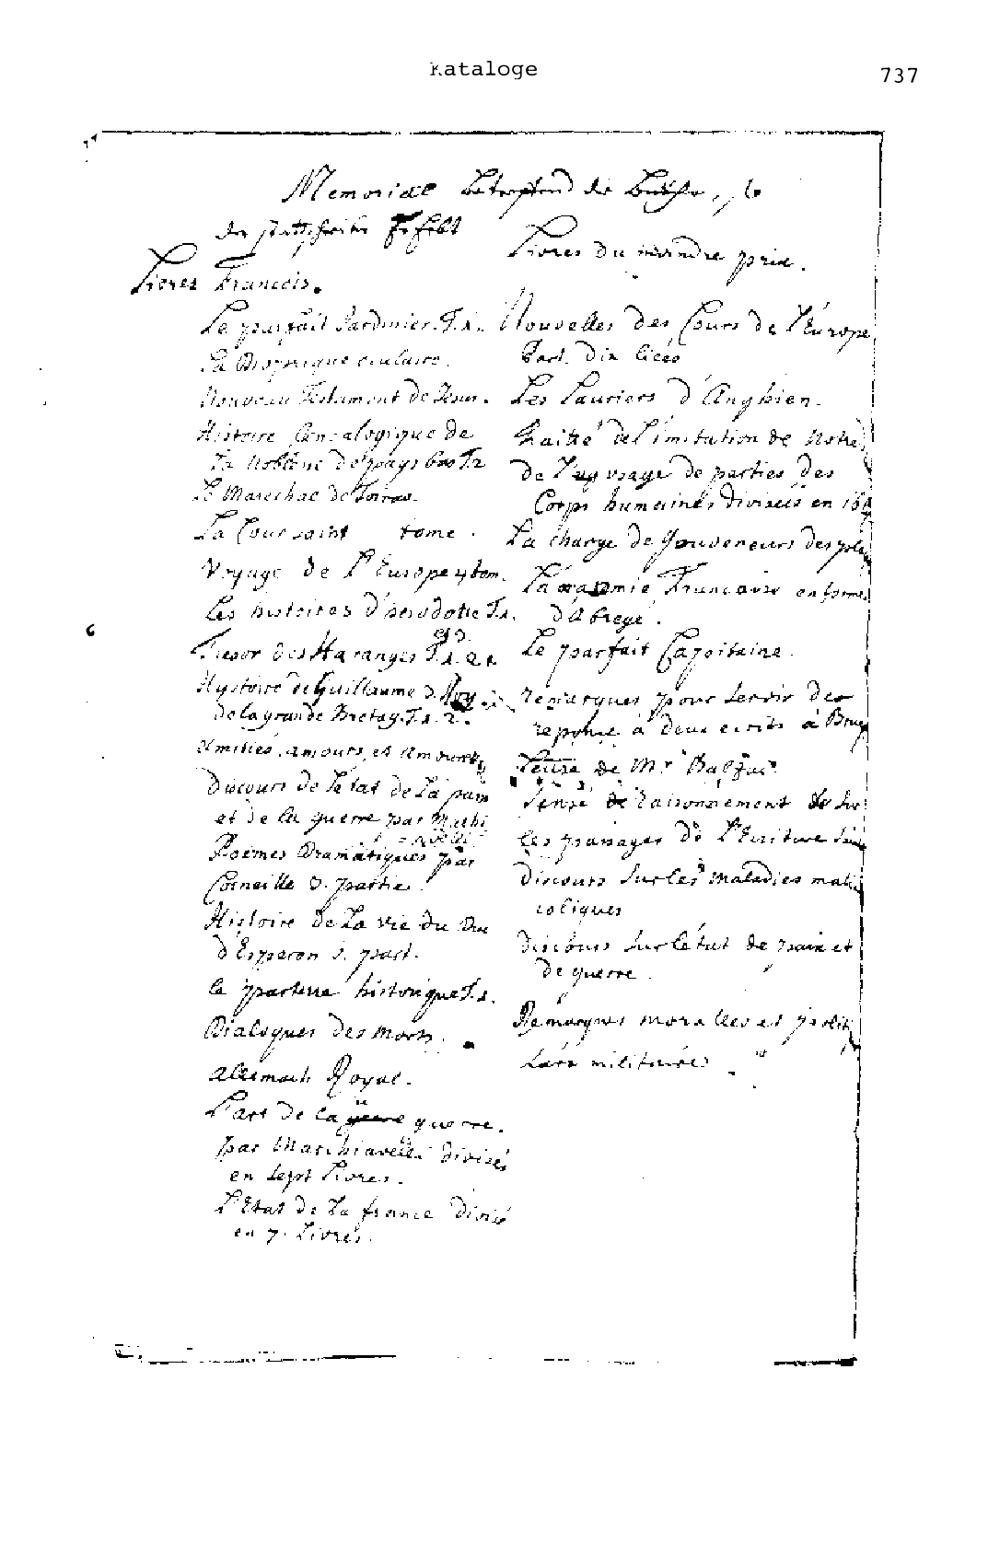 Kataloge
737
Memoriae die
der
Livres Francois.
Le parfait Jardinier. T.1.
La Dioptrique oculaire.
Nouveau Testament de Jesus.
Histoire Genealogique de
La Noblesse de pays bas T2
Le Marechal de Toiras.
La Cour saint tome.
Voyage de l'Europe 4 tom.
Les histoires d'herodote T.1.
Tresor des Haranges T.1. 2.
Hystoire de Guillaume 3. Roy
de la grande Bretag. T.1. 2.
Amitiés, amours, et Amourettes
Discours de l'etat de La paix
et de la guerre par Machi
Poemes Dramatiques par
Corneille 3. partie.
Histoire de La vie du Duc
d'Esperon 3. part.
le parterre historique T.1.
Dialogues des morts.
allemach Royal.
L'art de la guerre.
par Machiavelli divisés
en sept Livres.
L'Etat de La france divisé
en 7. Livres.
Livres du moindre prix.
Nouvelles des Cours de l'Europe
Part. dix
Les Lauriers d'Anghien.
traitté de l'imitation de Notre
de l'usage de parties des
Corps humaines divisées en
La charge de Gouverneurs des
Francoise en forme
d'Abregé.
Le parfait Capitaine.
remarques pour servir de
reponse à deux ecrits à
Lettre de Mr Balzac
de raisonnement sur
les passages de l'Ecriture
Discours sur les maladies
coliques
discours sur l'état de paix et
de guerre.
Remarques moralles et
militaire